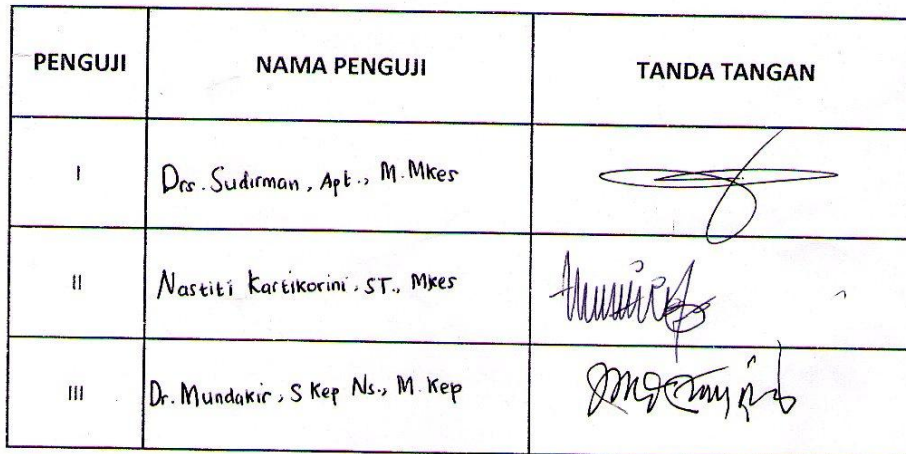 PENGUJI NAMA PENGUJI TANDA TANGAN
I Drs. Sudirman, Apt., M.Mkes
II Nastiti Kartikorini, ST., Mkes
III Dr. Mundakir, S Kep Ns., M. Kep